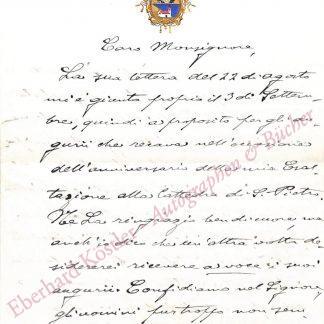 Caro Monsignore,
La sua lettera del 22 di agosto
mi è giunta proprio il 3 di Settem-
bre, quindi a proposito per gli au-
gurii che recava nell'occasione
dell'anniversario della mia Esal-
tazione alla Cattedra di S. Pietro.
Ne La ringrazio ben di cuore, ma
anch'io dico che un'altra volta de-
sidererei ricevere a voce i suoi
augurii. Confidiamo nel Signore,
gli uomini purtroppo non sem-
Eberhard Köstler - Autographen & Bücher